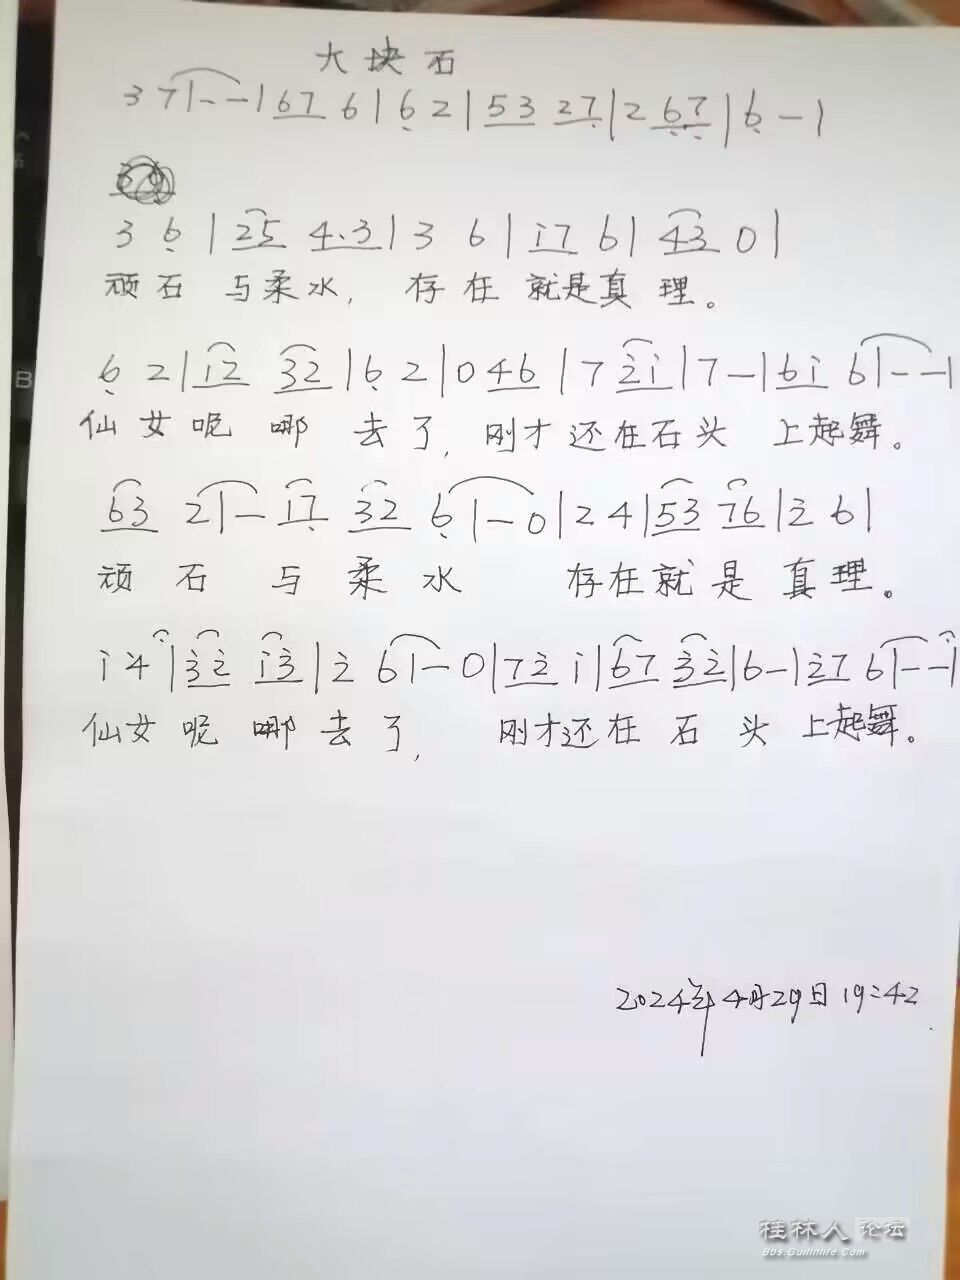 大块石
3 7|--|67 6|6̣ 2|53 27̣|2 6̣7̣|6̣-|
3 6̣|25 4.3|3 6|i7 6|43 0|
顽石与柔水,存在就是真理。
6̣ 2|i2 32|6̣ 2|0 46|7 2̇i|7-|6i 6|--|
仙女呢哪去了,刚才还在石头上起舞。
63 2|- 17̣ 32 6̣|-0|24|53 76|2̇ 6|
顽石与柔水 存在就是真理。
i 4̇|3̇2̇ i3̇|2̇ 6|-0|72̇ i|67 3̇2̇|6-|2̇7 6|--|
仙女呢哪去了,刚才还在石头上起舞。
2024年4月29日19:42
B
桂林人论坛
Bbs.Guilinlife.Com